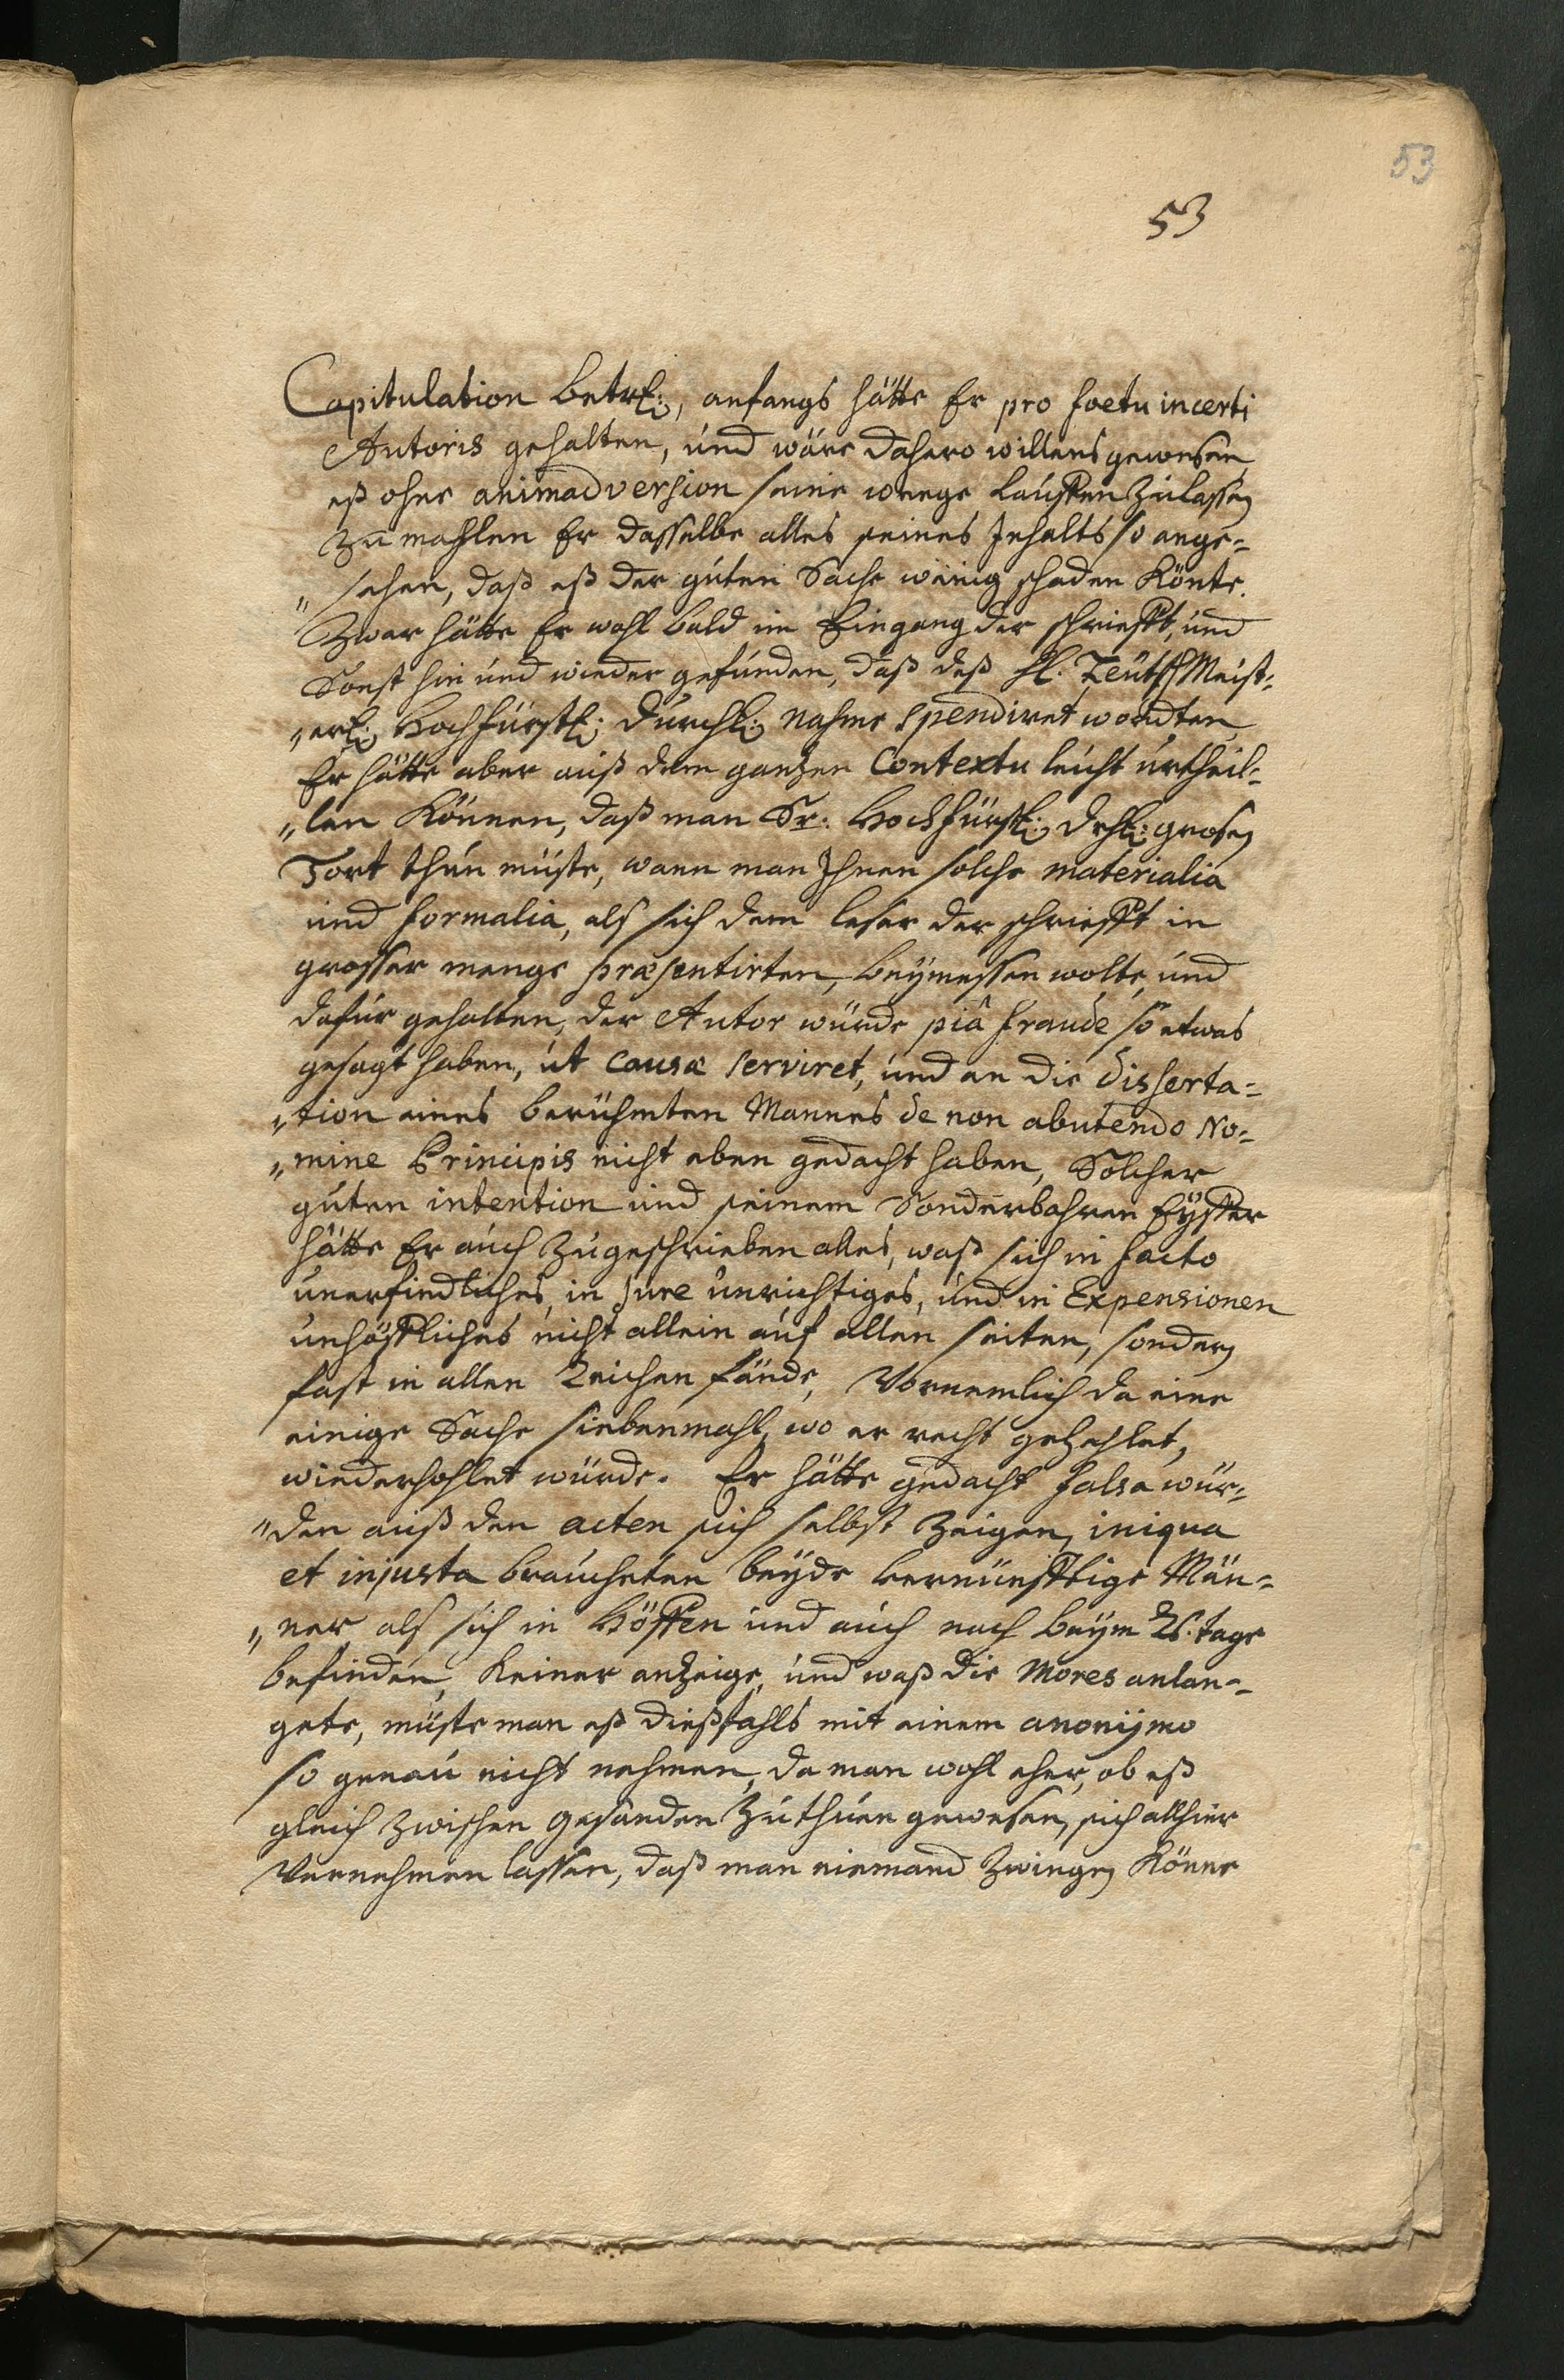 53
53
Capitulation betrl:, anfangs hätte Er pro foetu incerti
Autoris gehalten, und wäre dahero willens gewesen
eß ohne animadversion seine weege lauffen zulassen
zumahlen Er dasselbe alles seines Inhalts so ange-
„sehen, daß eß der guten Sache wenig schaden Könte.
Zwar hätte Er wohl bald im Eingang der schriefft, und
Sonst hin und wieder gefunden, daß deß H. Teütsch Meist-
„erl: Hochfürstl: Durchl: nahme spendiret wordten
Er hätte aber auß dem gantzen Contextu leicht urtheil-
„len Können, daß man Sr. Hochfürstl: Drhl: grosen
Tort thun müste, wann man Ihnen solche materialia
und formalia, als sich dem leser der schriefft in
grosser menge præsentirten, beymessen wolte, und
dafür gehalten, der Autor würde piâ fraude so etwas
gesagt haben, ut causæ serviret, und an die disserta-
„tion eines berühmten Mannes de non abutendo No-
„mine Principis nicht eben gedacht haben, Solcher
guten intention und seinem Sonderbahren Eyffer
hätte Er auch zugeschrieben alles, waß sich in facto
unerfindliches, in jure unrichtiges, und in Expensionen
unhöffliches nicht allein auf allen seiten, sondern
fast in allen Zeichen fände, Vornemlich da eine
einige Sache siebenmahl, wo er recht gezehlet,
wiederhohlet würde. Er hätte gedacht falsa wür-
„den auß den acten sich selbst zeigen, iniqua
et injusta braucheten beyde vernünfftige Män-
„ner als sich in Höffen und auch noch beym Rs. tage
befinden, Keiner anzeige, und waß die Mores anlan-
gete, müste man eß dießfahls mit einem anonymo
so genau nicht nehmen, da man wohl eher, ob eß
gleich zwischen gesanden zuthuen gewesen, sich allhier
Vernehmen lassen, daß man niemand zwingen Könne